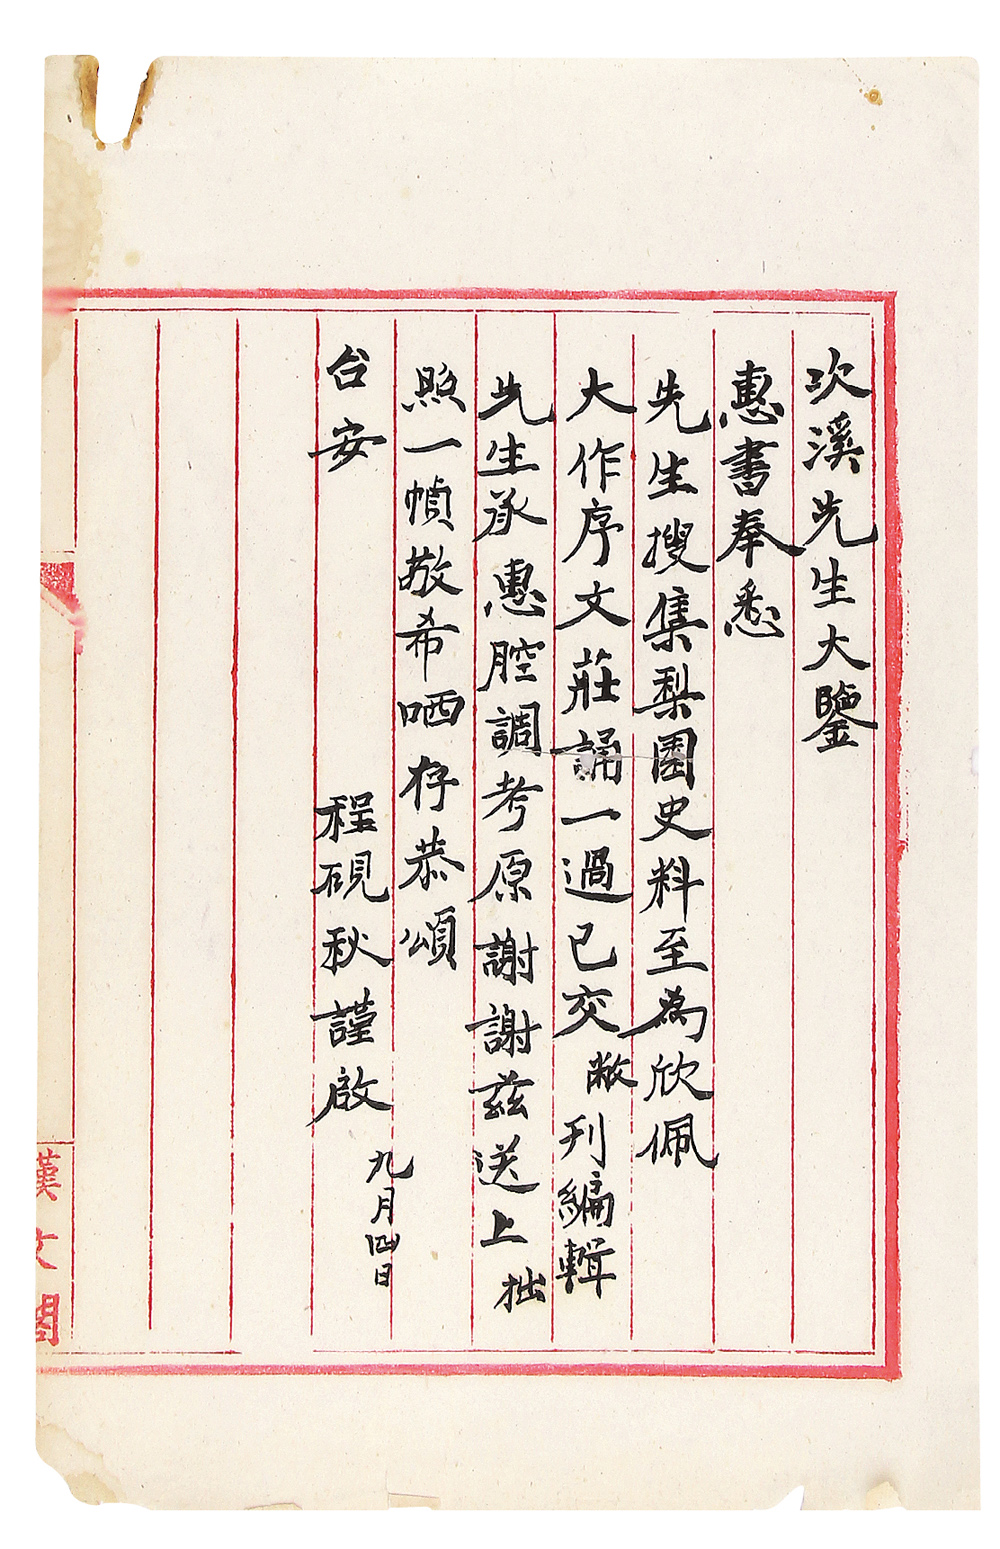 次溪先生大鑒
惠書奉悉
先生搜集梨園史料至為欣佩
大作序文莊誦一過已交敝刊編輯
先生承惠腔調考原謝謝茲送上拙
照一幀敬希哂存恭頌
台安　程硯秋謹啟
九月四日
漢文閣